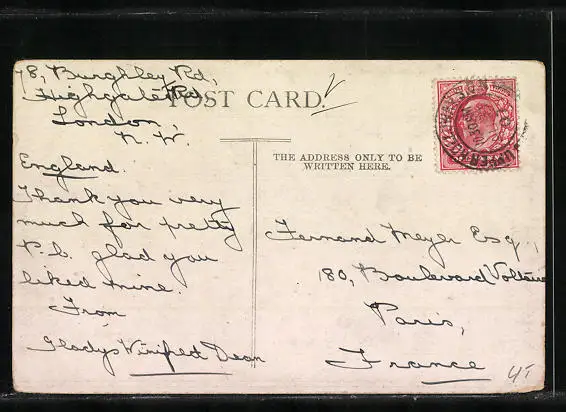 78, Burghley Rd,
Highgate Rd
London,
N. W.
England.
POST CARD.
Thank you very
much for pretty
P.b. glad you
liked mine.
From
Gladys Winifred Dean
THE ADDRESS ONLY TO BE
WRITTEN HERE.
Fernand Meyer Esq.,
180, Boulevard Voltaire
Paris,
France
45